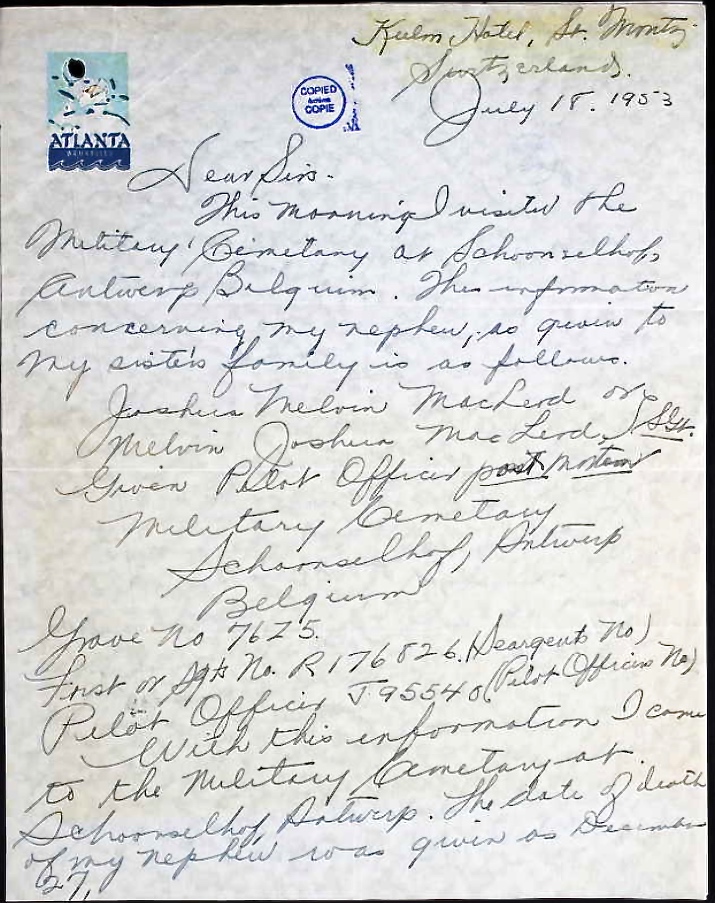 Kulm Hotel, St. Moritz
Switzerland.
July 18. 1953
COPIED
COPIE
ATLANTA
Dear Sirs.
This morning I visited the
Military Cemetary at Schoonselhof,
Antwerp Belgium. This information
concerning my nephew, as given to
my sister's family is as follows.
Joshua Melvin MacLeod or
Melvin Joshua MacLeod, } Sgt.
Given Pilot Officer post mortem
Military Cemetary
Schoonselhof, Antwerp
Belgium
Grave No 7625.
First or Sgts No. R176826. (Seargents No)
Pilot Officer J95540 (Pilot Officers No)
With this information I came
to the Military Cemetary at
Schoonselhof, Antwerp. The date of death
of my nephew was given as Decemeber
27,